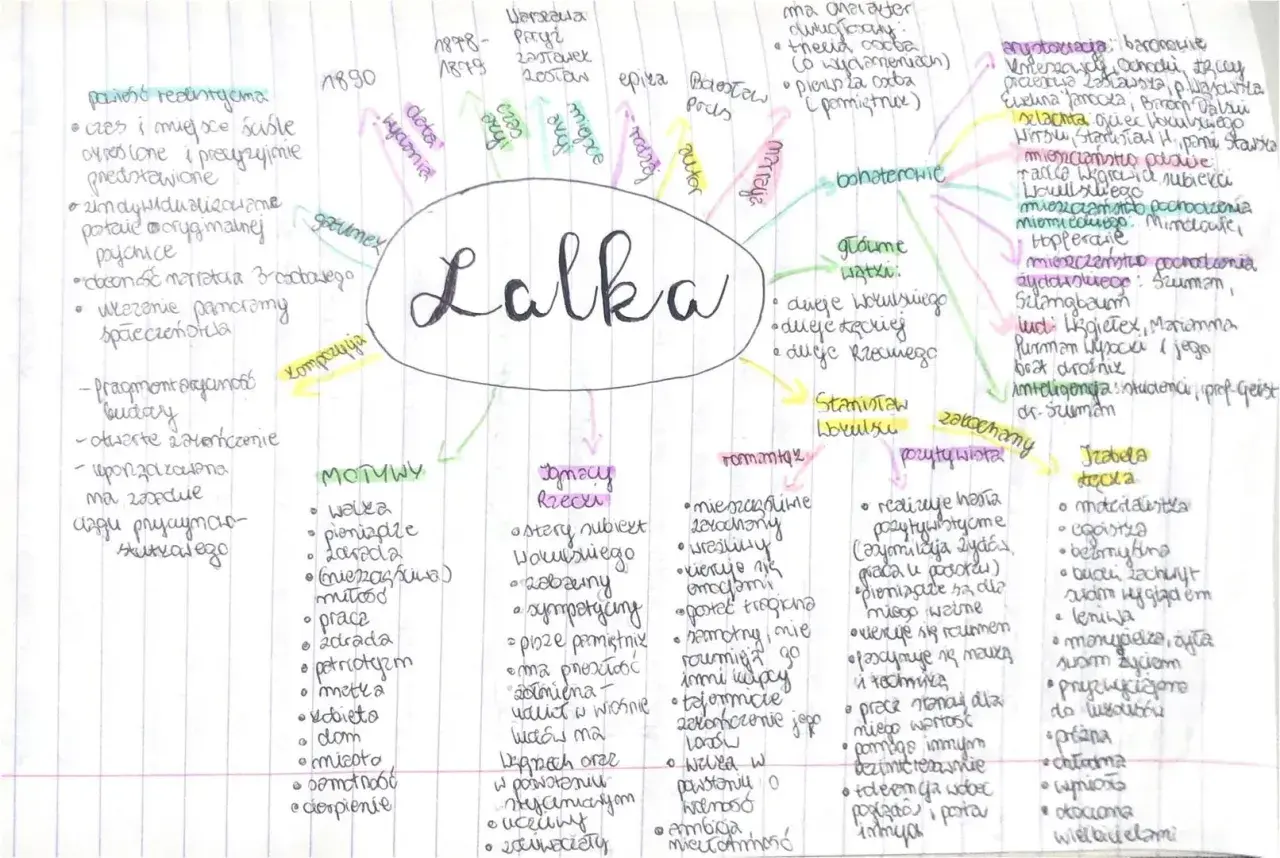 Lalka
gatunek
powieść realistyczna
• czas i miejsce ściśle
określone i precyzyjnie
przedstawione
• zindywidualizowane
postacie o oryginalnej
psychice
• obecność narratora 3-osobowego
• ukazanie panoramy
społeczeństwa
kompozycja
- fragmentaryczność
budowy
- otwarte zakończenie
- uporządkowana
na zasadzie
ciągu przyczynowo-
skutkowego
data
wydania
1890
czas
akcji
1878-
1879
miejsce
akcji
Warszawa
Paryż
Zasławek
Zasław
rodzaj
epika
autor
Bolesław
Prus
narracja
ma charakter
dwugłosowy:
• trzecia osoba
(o wydarzeniach)
• pierwsza osoba
(pamiętnik)
bohaterowie
arystokracja: baronowie
Krzeszowscy, Ochocki, Łęccy
prezesowa Zasławska, p. Wąsowska
Ewelina Janocka, Baron Dalski
szlachta: ojciec Wokulskiego
Wirski, Stanisław W, pani Stawska
mieszczaństwo polskie:
radca Węgrowicz, subiekci
Wokulskiego
mieszczaństwo pochodzenia
niemieckiego: Minclowie,
Hopferowie
mieszczaństwo pochodzenia
żydowskiego: Szuman,
Szlangbaum
lud: Węgiełek, Marianna
furman Wysocki i jego
brat dróżnik
inteligencja: studenci, prof. Geist
dr. Szuman
główne
wątki:
• dzieje Wokulskiego
• dzieje Łęckiej
• dzieje Rzeckiego
MOTYWY
• walka
• pieniądze
• zdrada
• (nieszczęśliwa)
miłość
• praca
• zdrada
• patriotyzm
• matka
• kobieta
• dom
• miasto
• samotność
• cierpienie
Ignacy
Rzecki
• stary subiekt
Wokulskiego
• zabawny
• sympatyczny
• pisze pamiętnik
• ma przeszłość
żołnierza -
walczył w wiośnie
ludów na
Węgrzech oraz
w powstaniu
styczniowym
• uczciwy
• zdziwaczały
Stanisław
Wokulski
romantyk
• nieszczęśliwie
zakochany
• wrażliwy
• kieruje się
emocjami
• postać tragiczna
• samotny, nie
rozumieją go
inni kupcy
• tajemnicze
zakończenie jego
losów
• walka w
powstaniu o
wolność
• ambicja
nieufanność
pozytywista
• realizuje hasła
pozytywistyczne
(asymilacja Żydów,
praca u podstaw)
• pieniądze są dla
niego ważne
• kieruje się rozumem
• fascynuje się nauką
i techniką
• praca stanowi dla
niego wartość
• pomaga innym
bezinteresownie
• tolerancja wobec
poglądów, postaw
innych
zakochany
Izabela
Łęcka
• materialistka
• egoistka
• bezmyślna
• budzi zachwyt
swoim wyglądem
• leniwa
• marzycielka, żyła
swoim życiem
• przyzwyczajona
do luksusów
• próżna
• chłodna
• wyniosła
• otoczona
wielbicielami